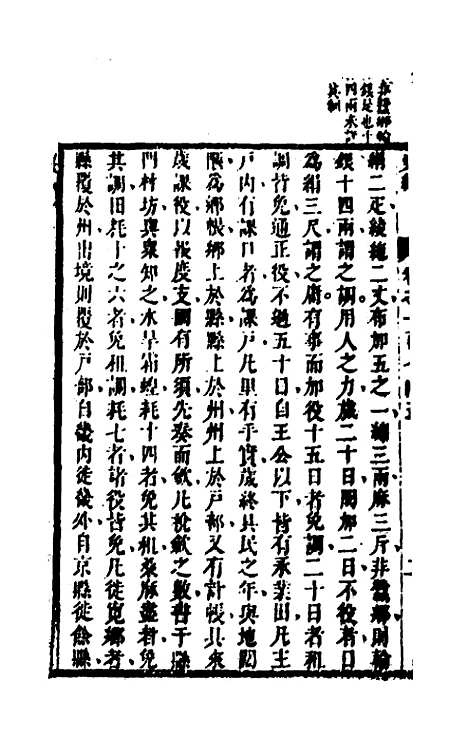 非蠶鄉輸
銀是也十
四兩未詳
其制
絹二疋綾絁二丈布加五之一綿三兩麻三斤非蠶鄉則輸
銀十四兩謂之調用人之力歲二十日閏加二日不役者日
為絹三尺謂之庸有事而加役十五日者免調三十日者租
調皆免通正役不過五十日自王公以下皆有永業田凡主
戶內有課口者為課戶凡里有手實歲終具民之年與地闊
陿為鄉帳鄉上於縣縣上於州州上於戶部又有計帳具來
歲課役以報度支國有所須先奏而歛凡稅歛之數書于縣
門村坊與眾知之水旱霜蝗耗十四者免其租桑麻盡者免
其調田耗十之六者免租調耗七者諸役皆免凡徙寬鄉者
縣覆於州出境則覆於戶部自畿內徙畿外自京縣徙餘縣